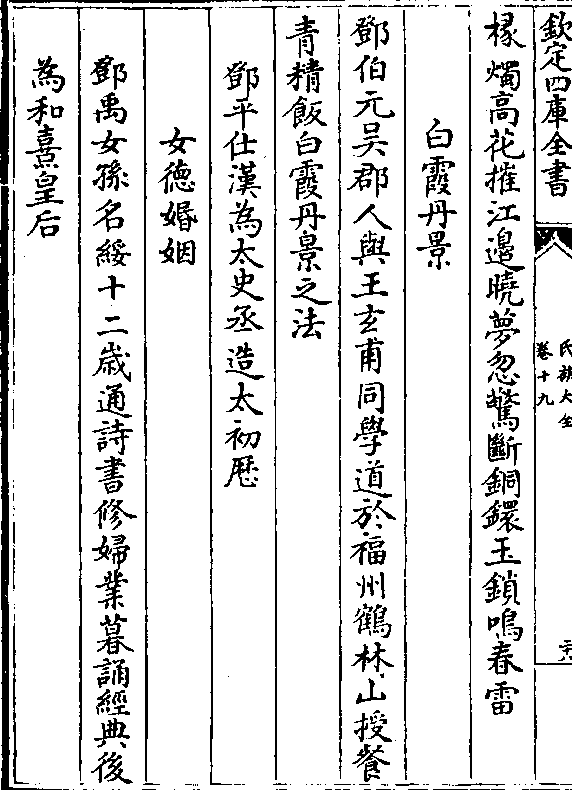 欽定四庫全書
氏族大全
卷十九
椽燭高花摧江邊曉夢忽驚斷銅鐶玉鎖鳴春雷
白霞丹景
鄧伯元吳郡人與王玄甫同學道於福州鶴林山授餐
青精飯白霞丹景之法
鄧平仕漢為太史丞造太初厯
女德婚姻
鄧禹女孫名綏十二歲通詩書修婦業暮誦經典後
為和熹皇后